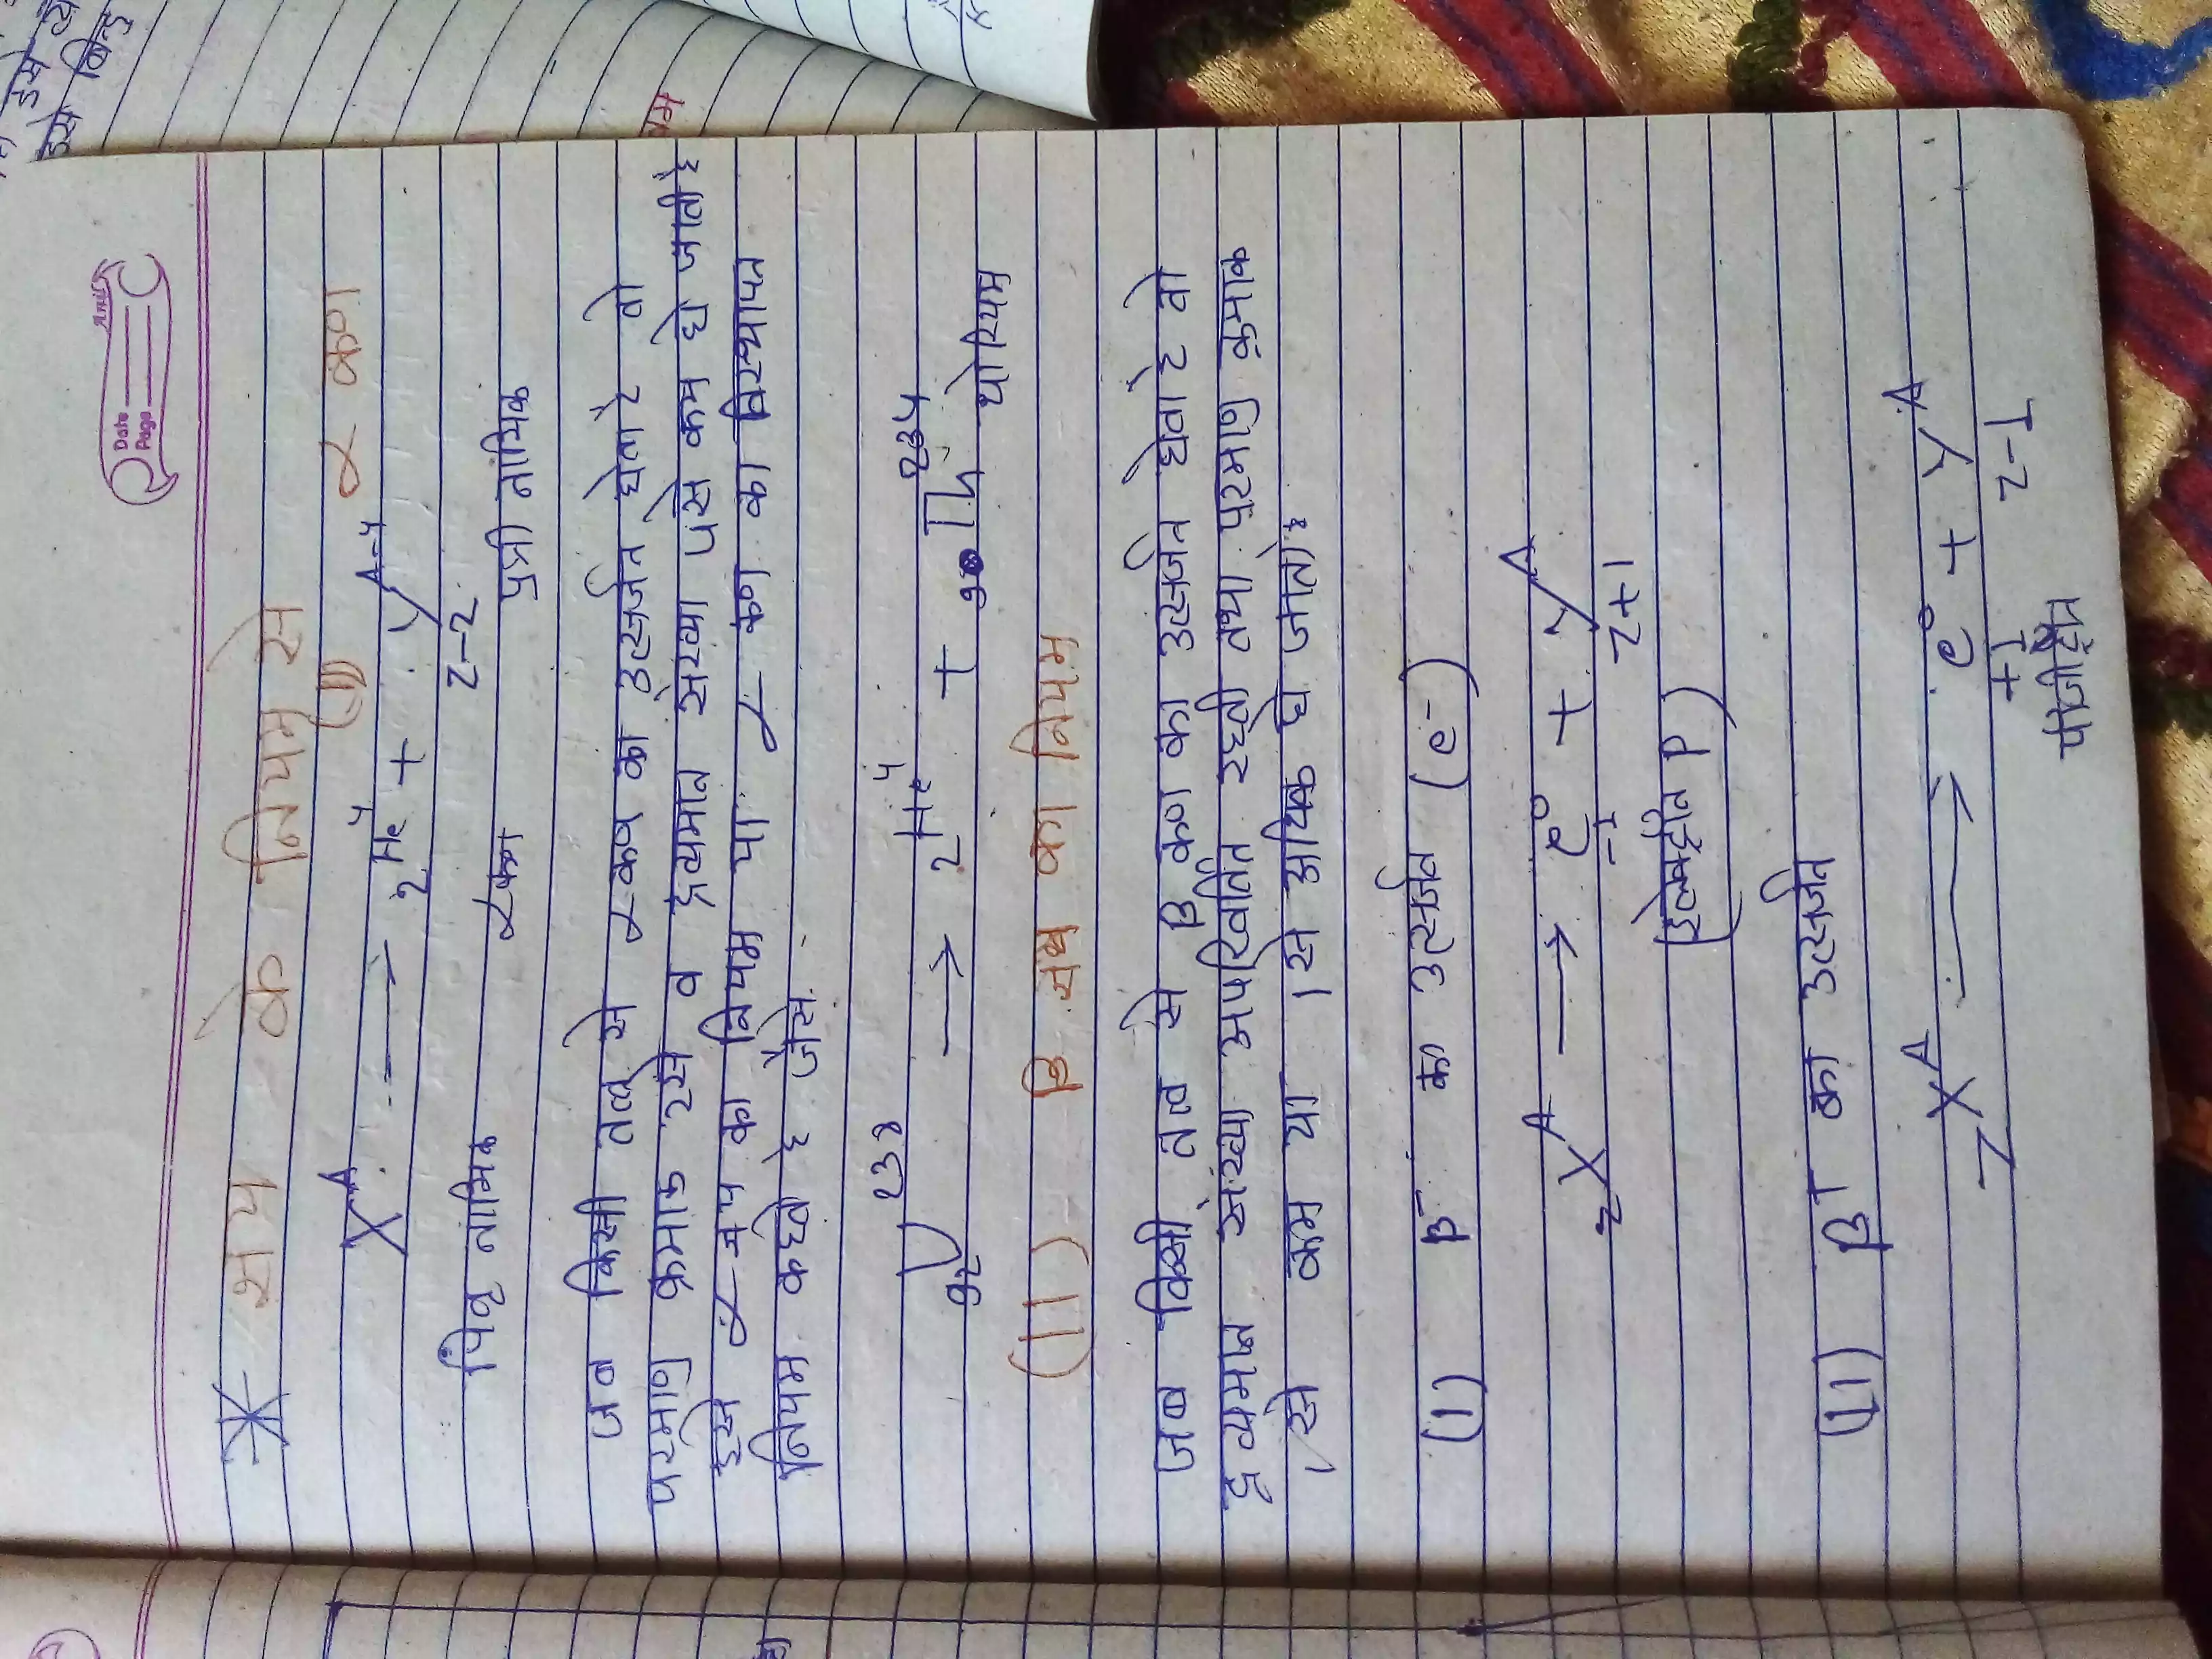 Anvil
Date
Page
* क्षय के नियम से
(1) α कण
X^A → ₂He⁴ + Y^A-4
Z-2
पितृ नाभिक α कण पुत्री नाभिक
जब किसी तत्व से α-कण का उत्सर्जन होता है तो
परमाणु क्रमांड 2 से व द्रव्यमान संख्या 4 से कम हो जाती है
इसे α-क्षय का नियम या α- कण का विस्थापन
नियम कहते है जैसे.
₉₂U²³⁸ → ₂He⁴ + ₉₀Th²³⁴
थोरियम
(11) β क्षय का नियम
जब किसी तत्व से β कण का उत्सर्जन होता है तो
द्रव्यमान संख्या अपरिवर्तित रहती तथा परमाणु क्रमांक
1 से कम या 1 से अधिक हो जाता है
(1) β⁻ का उत्सर्जन (e⁻)
zX^A → ₋₁e⁰ + Y^A
Z+1
(इलेक्ट्रॉन P)
(11) β⁺ का उत्सर्जन
zX^A → ₊₁e⁰ + Y^A
Z-1
पाजीट्रॉन